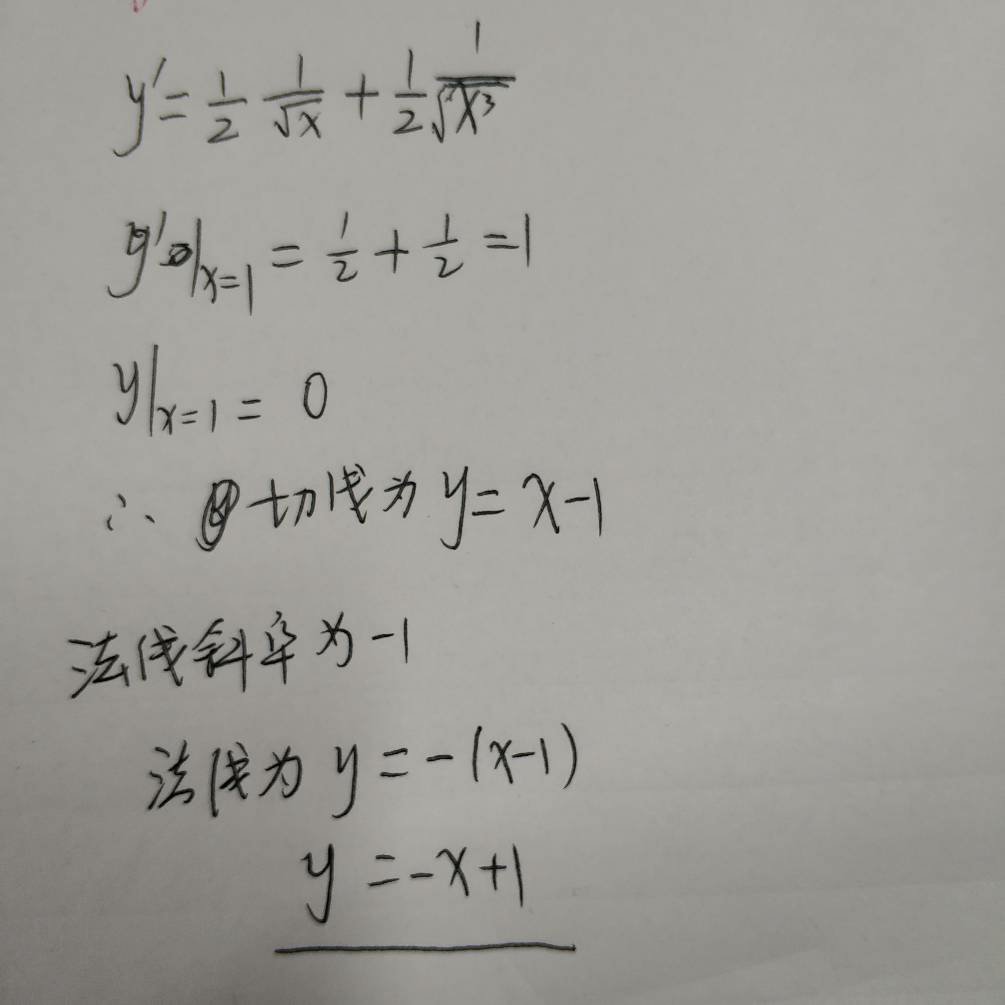 y' = 1/2 1/√x + 1/2 1/√x³
y'|x=1 = 1/2 + 1/2 = 1
y|x=1 = 0
∴ 切线为 y = x-1
法线斜率为 -1
法线为 y = -(x-1)
y = -x+1